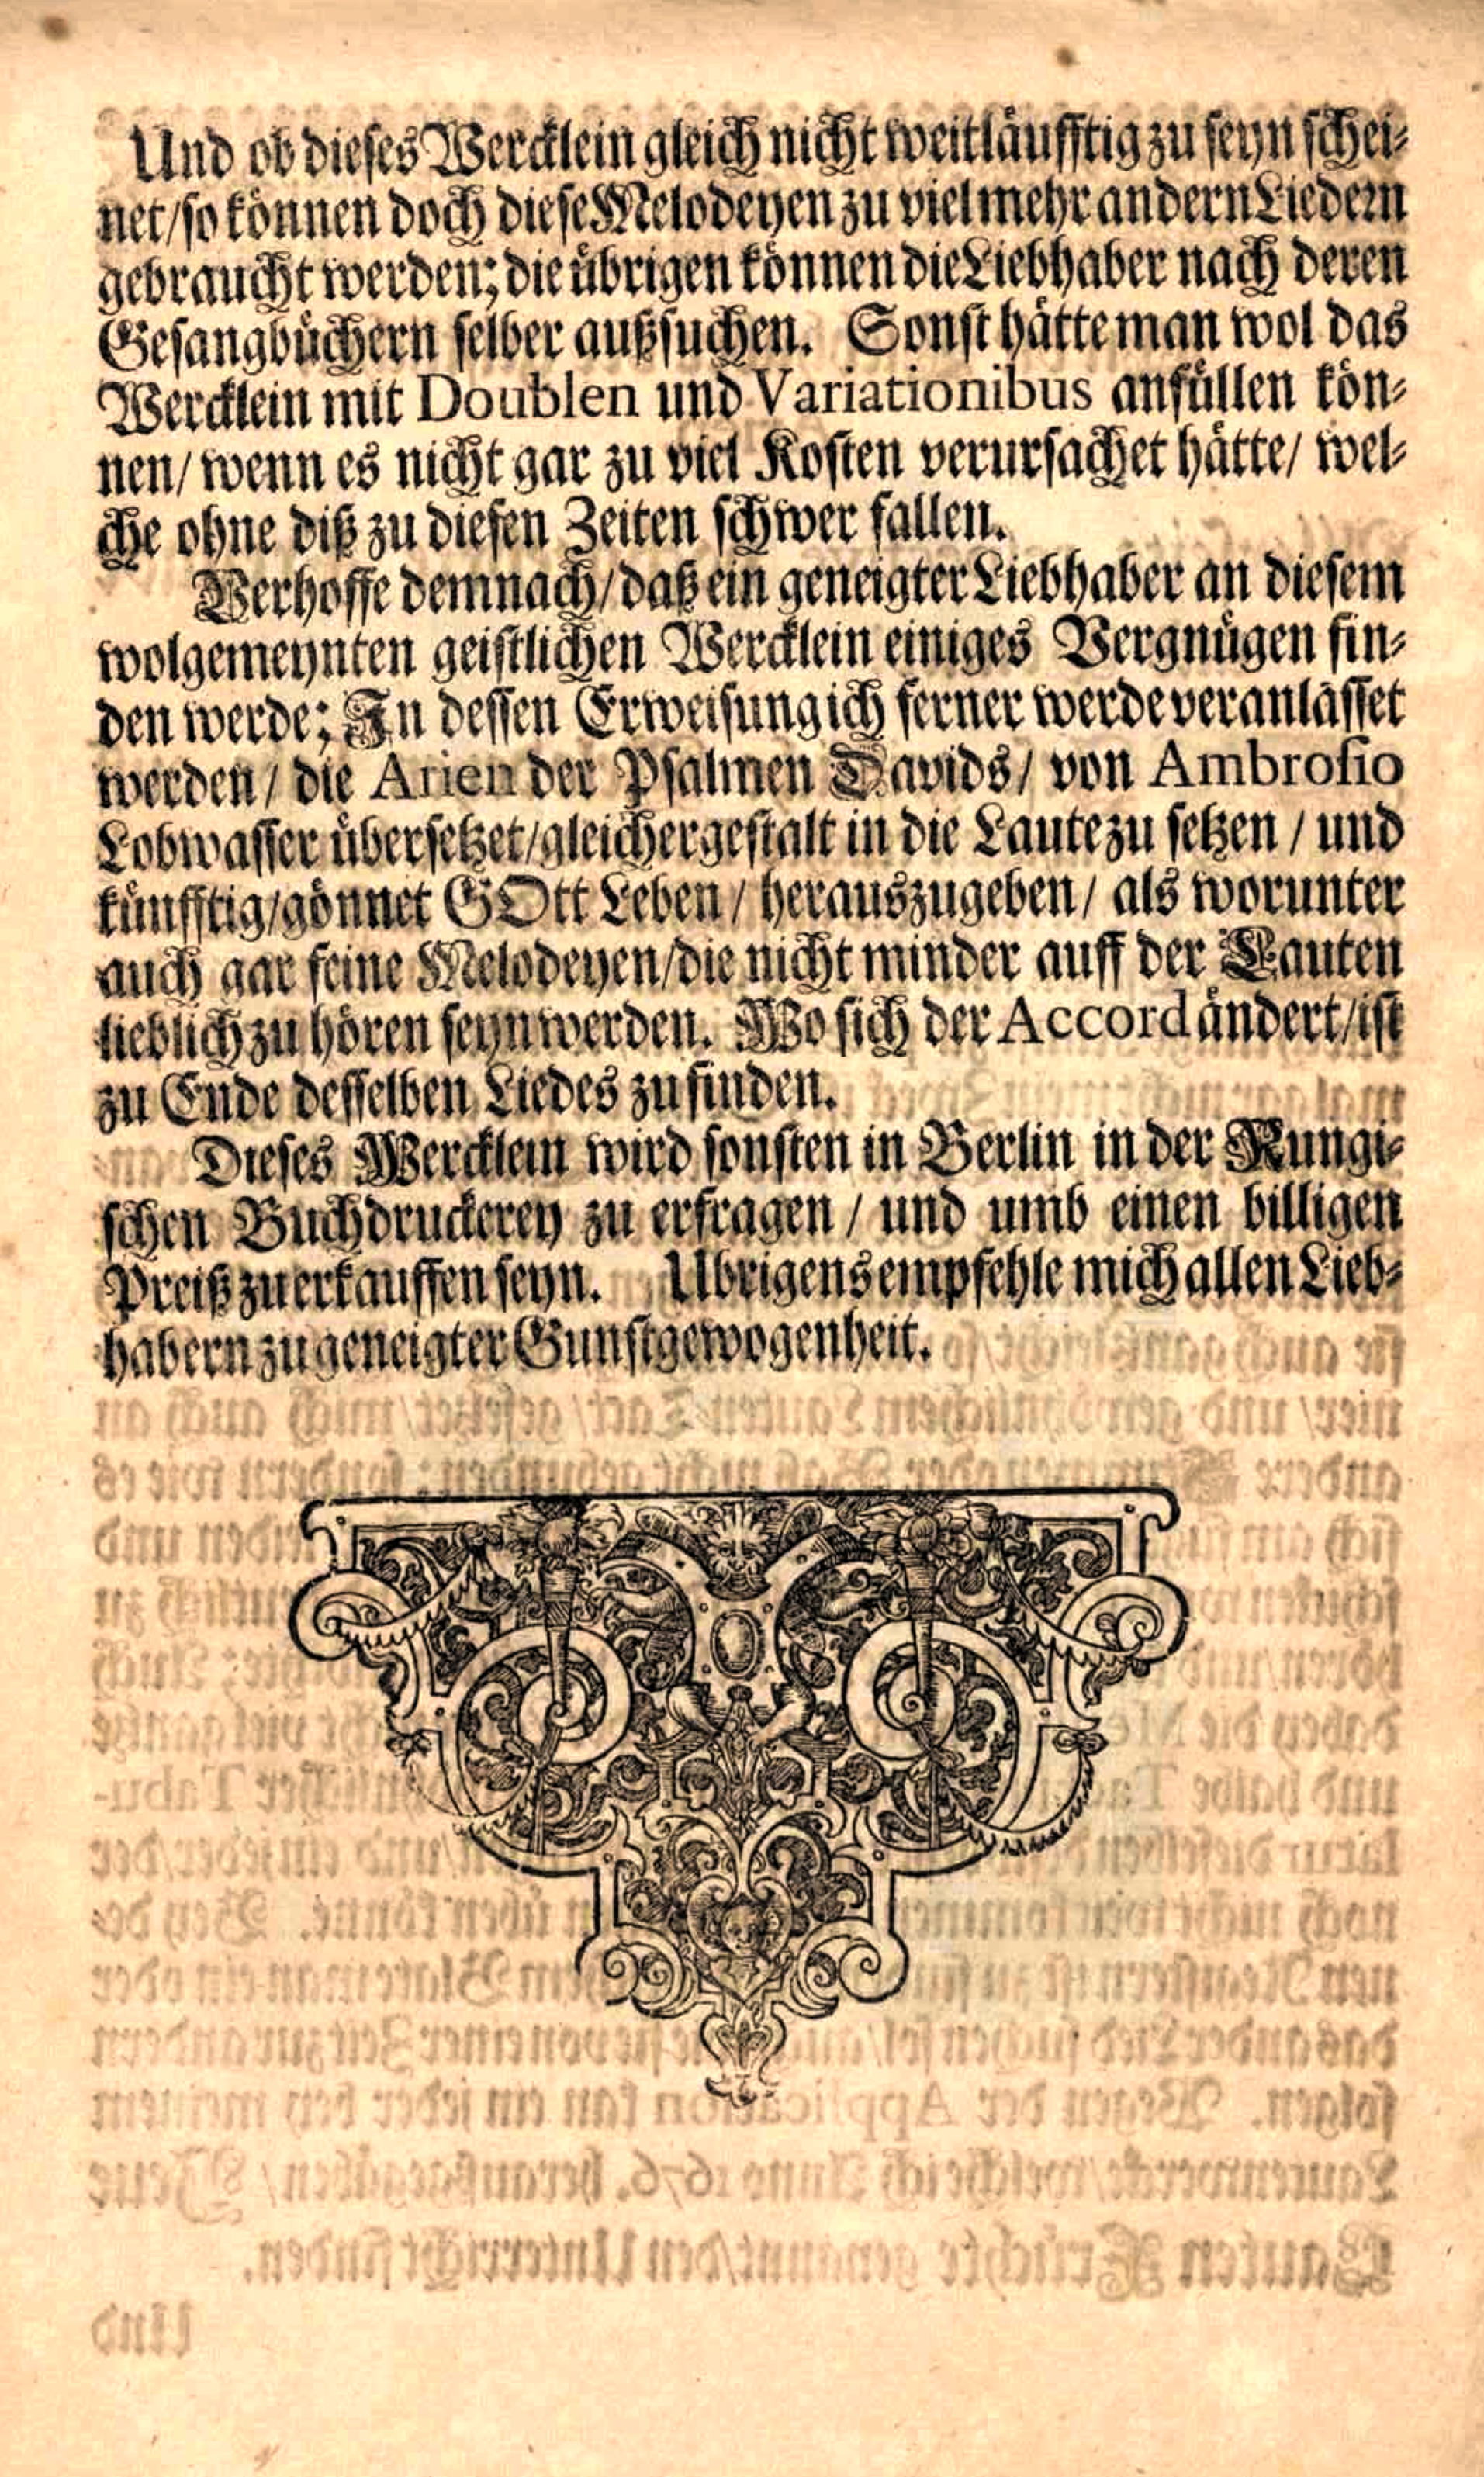 Und ob dieses Wercklein gleich nicht weitläufftig zu seyn schei-
net/so können doch diese Melodeyen zu viel mehr andern Liedern
gebraucht werden; die übrigen können die Liebhaber nach deren
Gesangbüchern selber außsuchen. Sonst hätte man wol das
Wercklein mit Doublen und Variationibus anfüllen kön-
nen/ wenn es nicht gar zu viel Kosten verursachet hätte/ wel-
che ohne diß zu diesen Zeiten schwer fallen.
Verhoffe demnach/daß ein geneigter Liebhaber an diesem
wolgemeynten geistlichen Wercklein einiges Vergnügen fin-
den werde; In dessen Erweisung ich ferner werde veranlasset
werden/ die Arien der Psalmen Davids/ von Ambrosio
Lobwasser übersetzet/gleichergestalt in die Laute zu setzen / und
künfftig/gönnet GOtt Leben/ herauszugeben/ als worunter
auch gar feine Melodeyen/die nicht minder auff der Lauten
lieblich zu hören seyn werden. Wo sich der Accord ändert/ist
zu Ende desselben Liedes zu finden.
Dieses Wercklein wird sonsten in Berlin in der Rungi-
schen Buchdruckerey zu erfragen / und umb einen billigen
Preiß zu erkauffen seyn. Ubrigens empfehle mich allen Lieb-
habern zu geneigter Gunstgewogenheit.